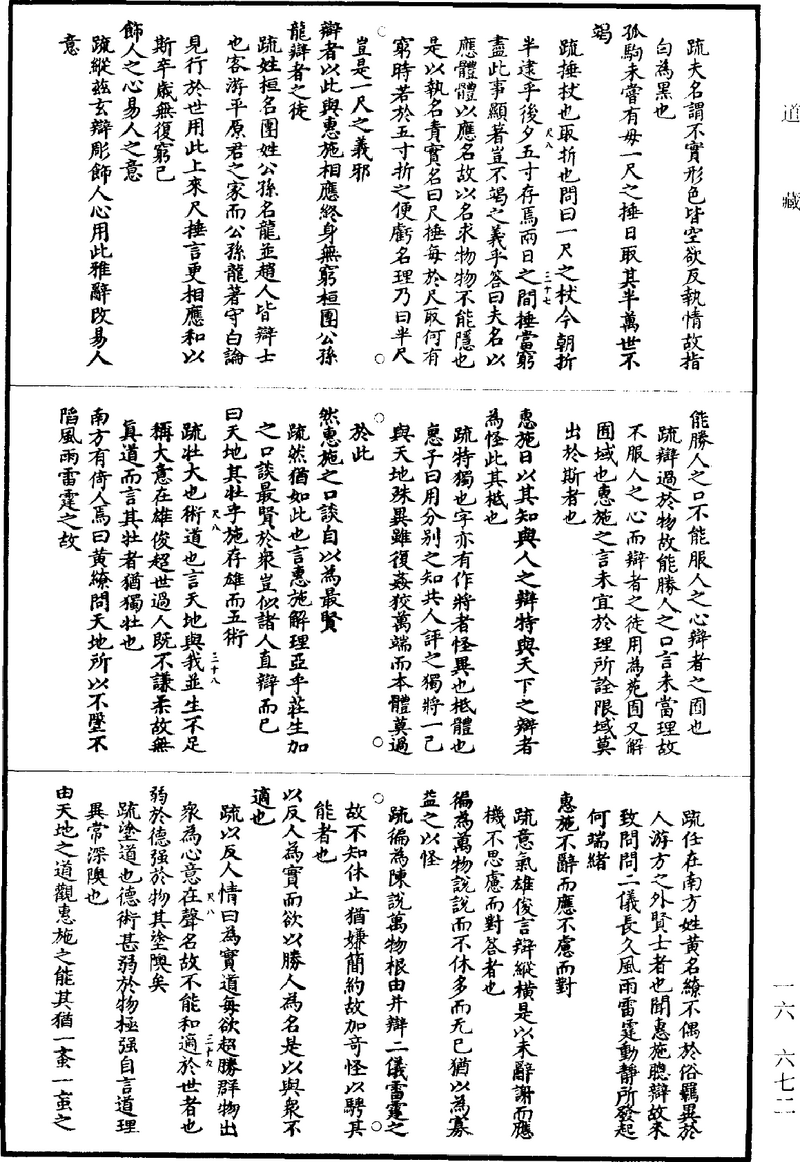 道藏
疏夫名謂不實形色皆空欲反執情故指
白為黑也
孤駒未嘗有母一尺之捶日取其半萬世不
竭
疏捶杖也取折也問曰一尺之杖今朝折
半逮乎後夕五寸存焉兩日之間捶當窮
尺八
三十七
盡此事顯著豈不竭之義乎答曰夫名以
應體體以應名故以名求物物不能隱也
是以執名責實名曰尺捶每於尺取何有
窮時若於五寸折之便虧名理乃曰半尺
豈是一尺之義邪
辯者以此與惠施相應終身無窮桓團公孫
龍辯者之徒
疏姓桓名團姓公孫名龍並趙人皆辯士
也客游平原君之家而公孫龍著守白論
見行於世用此上來尺捶言更相應和以
斯卒歲無復窮已
飾人之心易人之意
疏縱茲玄辯彫飾人心用此雅辭改易人
意
能勝人之口不能服人之心辯者之囿也
疏辯過於物故能勝人之口言未當理故
不服人之心而辯者之徒用為苑囿又解
囿域也惠施之言未宜於理所詮限域莫
出於斯者也
惠施日以其知與人之辯特與天下之辯者
為怪此其柢也
疏特獨也字亦有作將者怪異也柢體也
惠子日用分別之知共人評之獨將一己
與天地殊異雖復姦狡萬端而本體莫過
於此
然惠施之口談自以為最賢
疏然猶如此也言惠施解理亞乎莊生加
之口談最賢於衆豈似諸人直辯而已
曰天地其壯乎施存雄而五術
尺八
三十八
疏壯大也術道也言天地與我並生不足
稱大意在雄俊超世過人既不謙柔故無
真道而言其壯者猶獨壯也
南方有倚人焉曰黃繚問天地所以不墜不
陷風雨雷霆之故
疏任在南方姓黃名繚不偶於俗羈異於
人游方之外賢士者也聞惠施聰辯故來
致問問二儀長久風雨雷霆動靜所發起
何端緒
惠施不辭而應不慮而對
疏意氣雄俊言辯縱橫是以未辭謝而應
機不思慮而對答者也
徧為萬物說說而不休多而无已猶以為寡
益之以怪
疏徧為陳說萬物根由并辯二儀雷霆之
故不知休止猶嫌簡約故加奇怪以騁其
能者也
以反人為實而欲以勝人為名是以與衆不
適也
疏以反人情曰為實道每欲超勝群物出
尺八
三十九
衆為心意在聲名故不能和適於世者也
弱於德强於物其塗隩矣
疏塗道也德術甚弱於物極强自言道理
異常深隩也
由天地之道觀惠施之能其猶一蚉一䖟之
一六 六七二